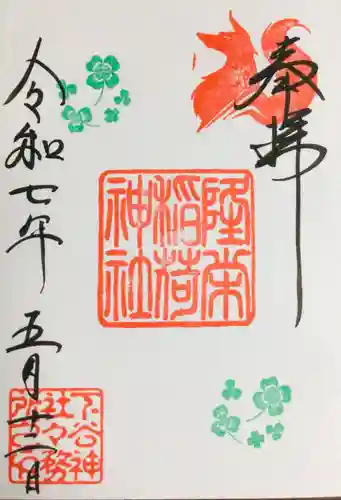 奉拝
隆栄
稲荷
神社
令和七年 五月十二日
下谷神
社々務
所之印